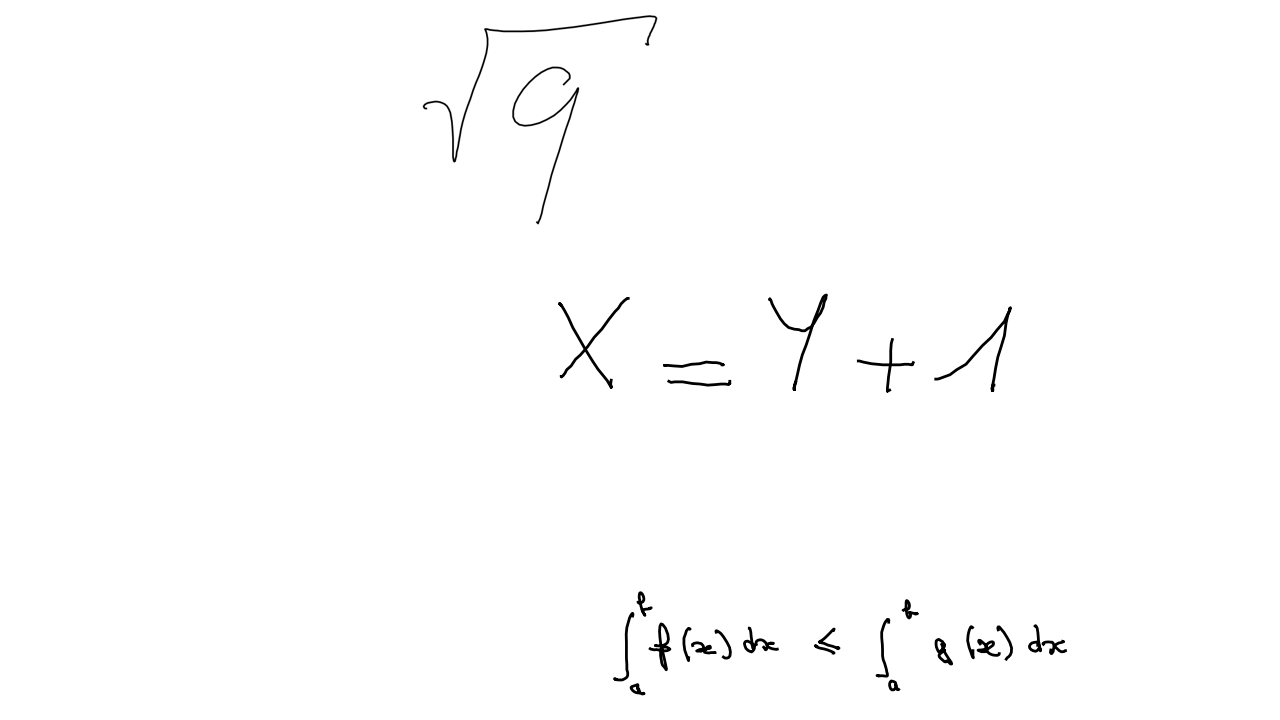 √9
X = Y + 1
∫_a^b f(x) dx ≤ ∫_a^b g(x) dx